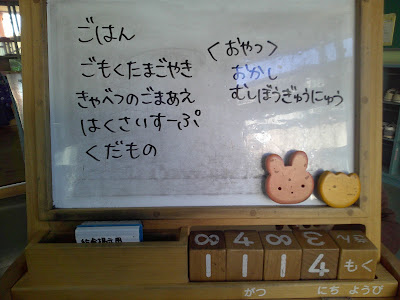 ごはん
ごもくたまごやき
きゃべつのごまあえ
はくさいすーぷ
くだもの
<おやつ>
おかし
むしぼうぎゅうにゅう
1 1 1 4 もく
がつ にち ようび